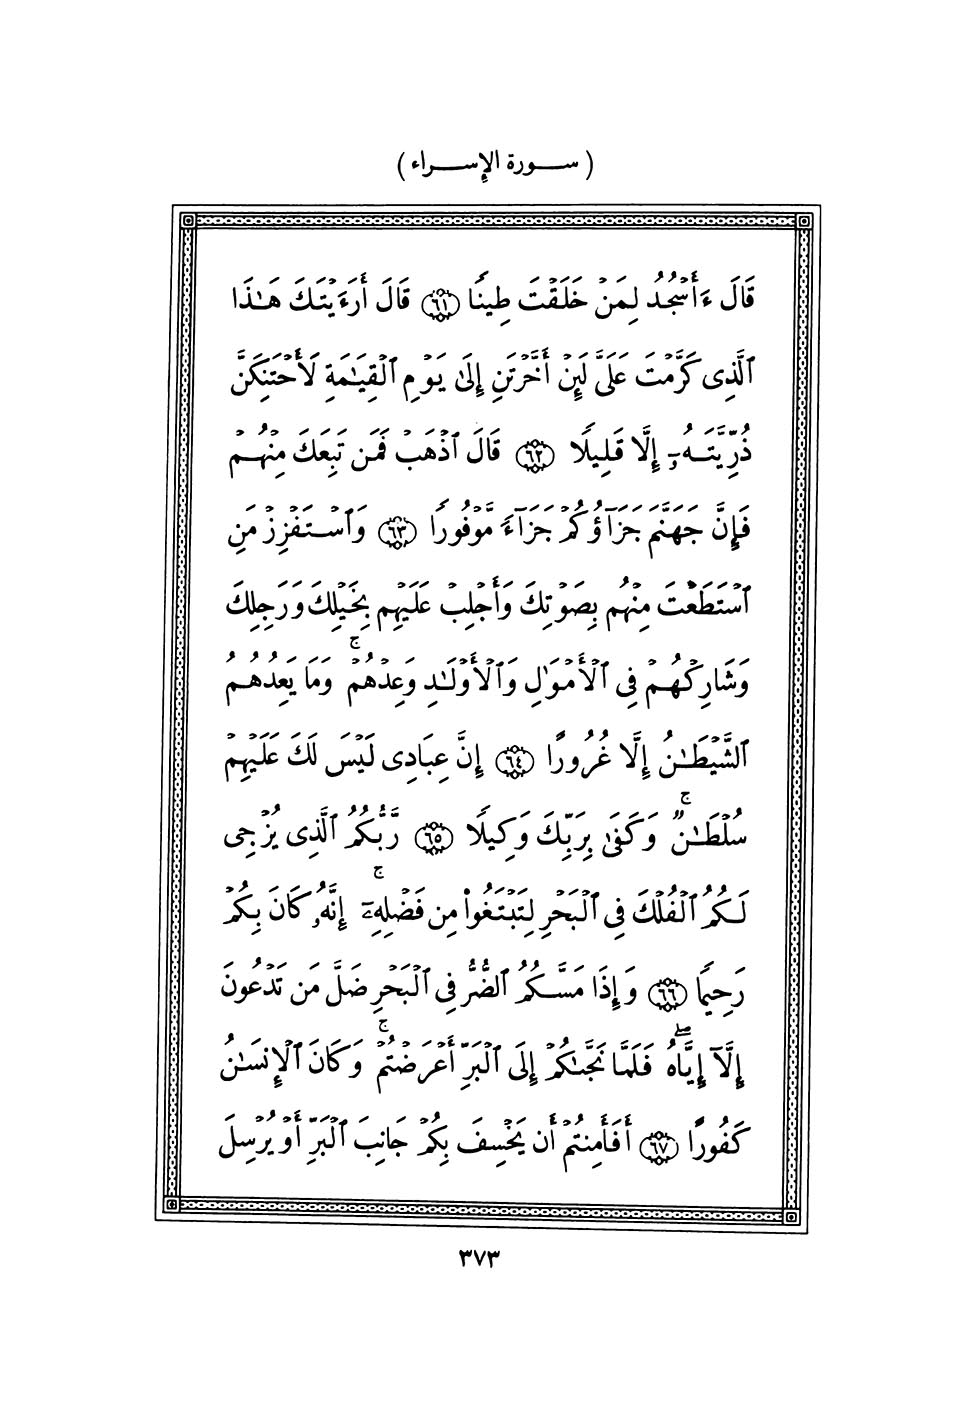 ( ســورة الإســراء )
قَالَ ءَأَسْجُدُ لِمَنْ خَلَقْتَ طِينًا ٦١ قَالَ أَرَءَيْتَكَ هَـٰذَا
ٱلَّذِى كَرَّمْتَ عَلَىَّ لَئِنْ أَخَّرْتَنِ إِلَىٰ يَوْمِ ٱلْقِيَـٰمَةِ لَأَحْتَنِكَنَّ
ذُرِّيَّتَهُۥٓ إِلَّا قَلِيلًا ٦٢ قَالَ ٱذْهَبْ فَمَن تَبِعَكَ مِنْهُمْ
فَإِنَّ جَهَنَّمَ جَزَآؤُكُمْ جَزَآءً مَّوْفُورًا ٦٣ وَٱسْتَفْزِزْ مَنِ
ٱسْتَطَعْتَ مِنْهُم بِصَوْتِكَ وَأَجْلِبْ عَلَيْهِم بِخَيْلِكَ وَرَجِلِكَ
وَشَارِكْهُمْ فِى ٱلْأَمْوَٰلِ وَٱلْأَوْلَـٰدِ وَعِدْهُمْ ۚ وَمَا يَعِدُهُمُ
ٱلشَّيْطَـٰنُ إِلَّا غُرُورًا ٦٤ إِنَّ عِبَادِى لَيْسَ لَكَ عَلَيْهِمْ
سُلْطَـٰنٌ ۚ وَكَفَىٰ بِرَبِّكَ وَكِيلًا ٦٥ رَّبُّكُمُ ٱلَّذِى يُزْجِى
لَكُمُ ٱلْفُلْكَ فِى ٱلْبَحْرِ لِتَبْتَغُوا۟ مِن فَضْلِهِۦٓ ۚ إِنَّهُۥ كَانَ بِكُمْ
رَحِيمًا ٦٦ وَإِذَا مَسَّكُمُ ٱلضُّرُّ فِى ٱلْبَحْرِ ضَلَّ مَن تَدْعُونَ
إِلَّآ إِيَّاهُ ۖ فَلَمَّا نَجَّىٰكُمْ إِلَى ٱلْبَرِّ أَعْرَضْتُمْ ۚ وَكَانَ ٱلْإِنسَـٰنُ
كَفُورًا ٦٧ أَفَأَمِنتُمْ أَن يَخْسِفَ بِكُمْ جَانِبَ ٱلْبَرِّ أَوْ يُرْسِلَ
٣٧٣